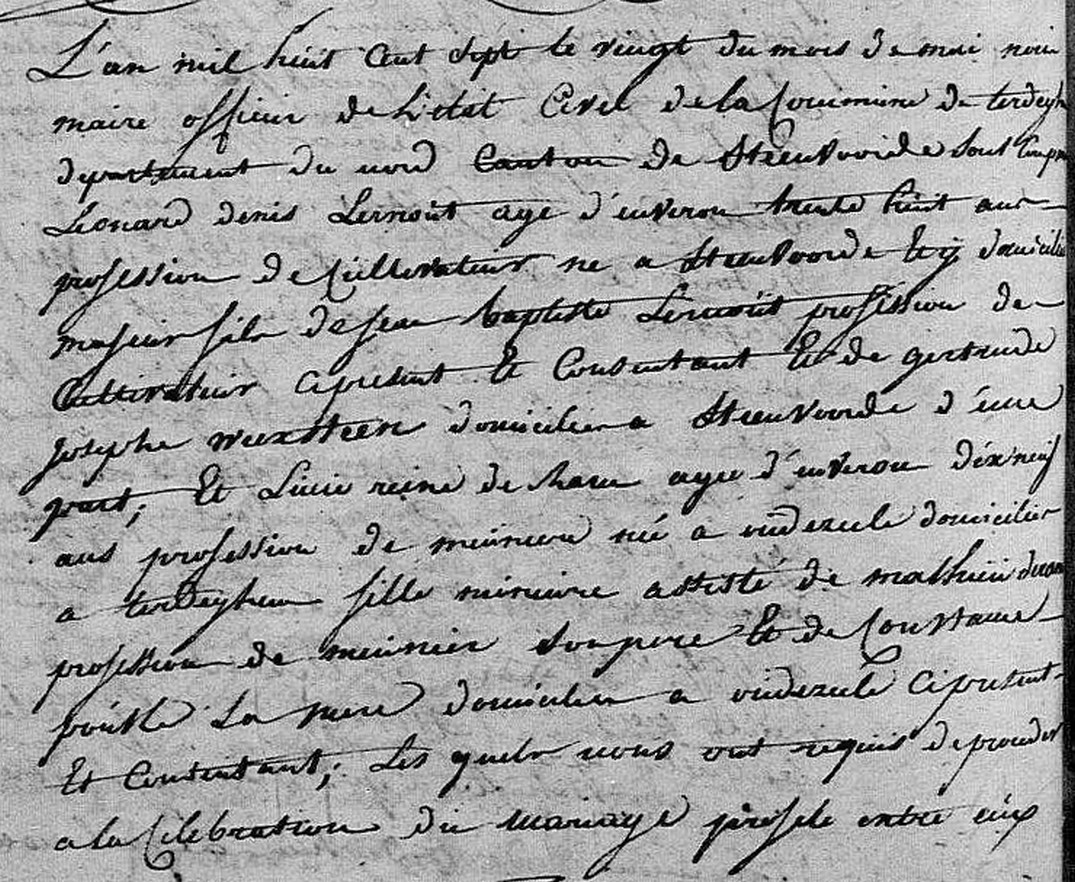 L'an mil huit cent sept le vingt du mois de mai nous
maire officier de l'etat civil de la Commune de terdeghe
departement du nord Canton de Steenvoorde Sont Compa
Léonard denis Lernout age d'environ trente huit ans
profession de Cultivateur ne a Steenvoorde et y domicilie
majeur fils de jean baptiste Lernout profession de
Cultivateur ci present et Consentant et de gertrude
josephe weexsteen domicilier a Steenvoorde d'une
part; et Livie reine de haene agee d'environ dix neuf
ans profession de meuniere née a oudezeele domicilier
a terdeghem fille mineure assisté de mathieu
profession de meunier Son pere et de Constance
Sa mere domicilier a oudezeele ci present
et Consentant; Les quels nous ont requis de proceder
a la Celebration du mariage projete entre eux